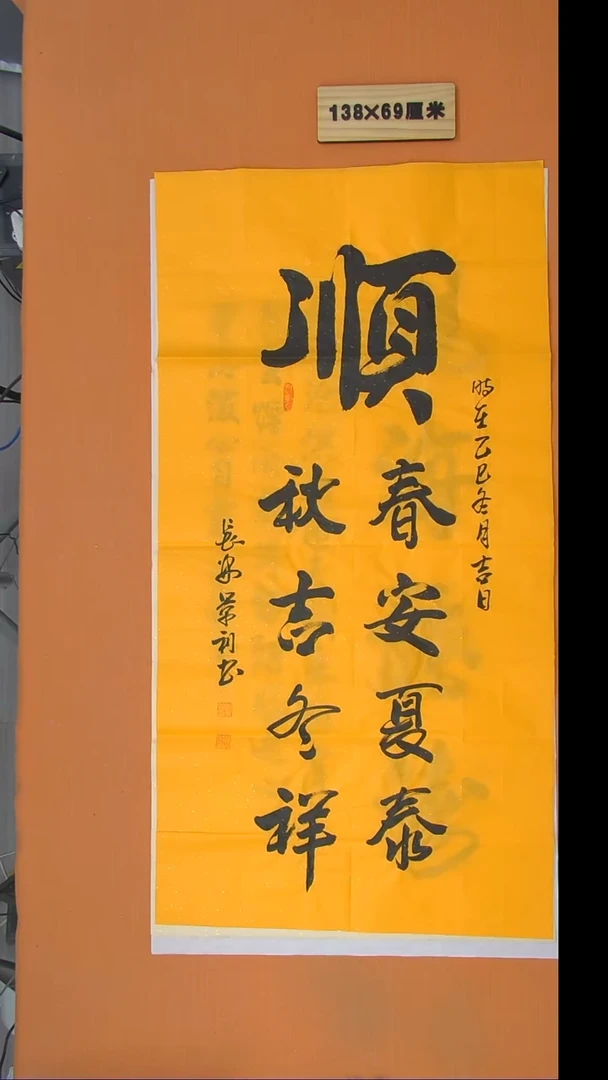 138×69厘米
順
時在乙巳冬月吉日
春安夏泰
秋吉冬祥
長安榮初书